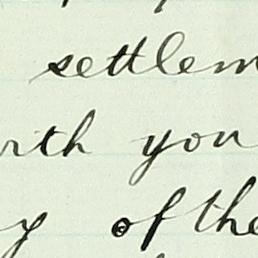 settlem
rth you
y of the